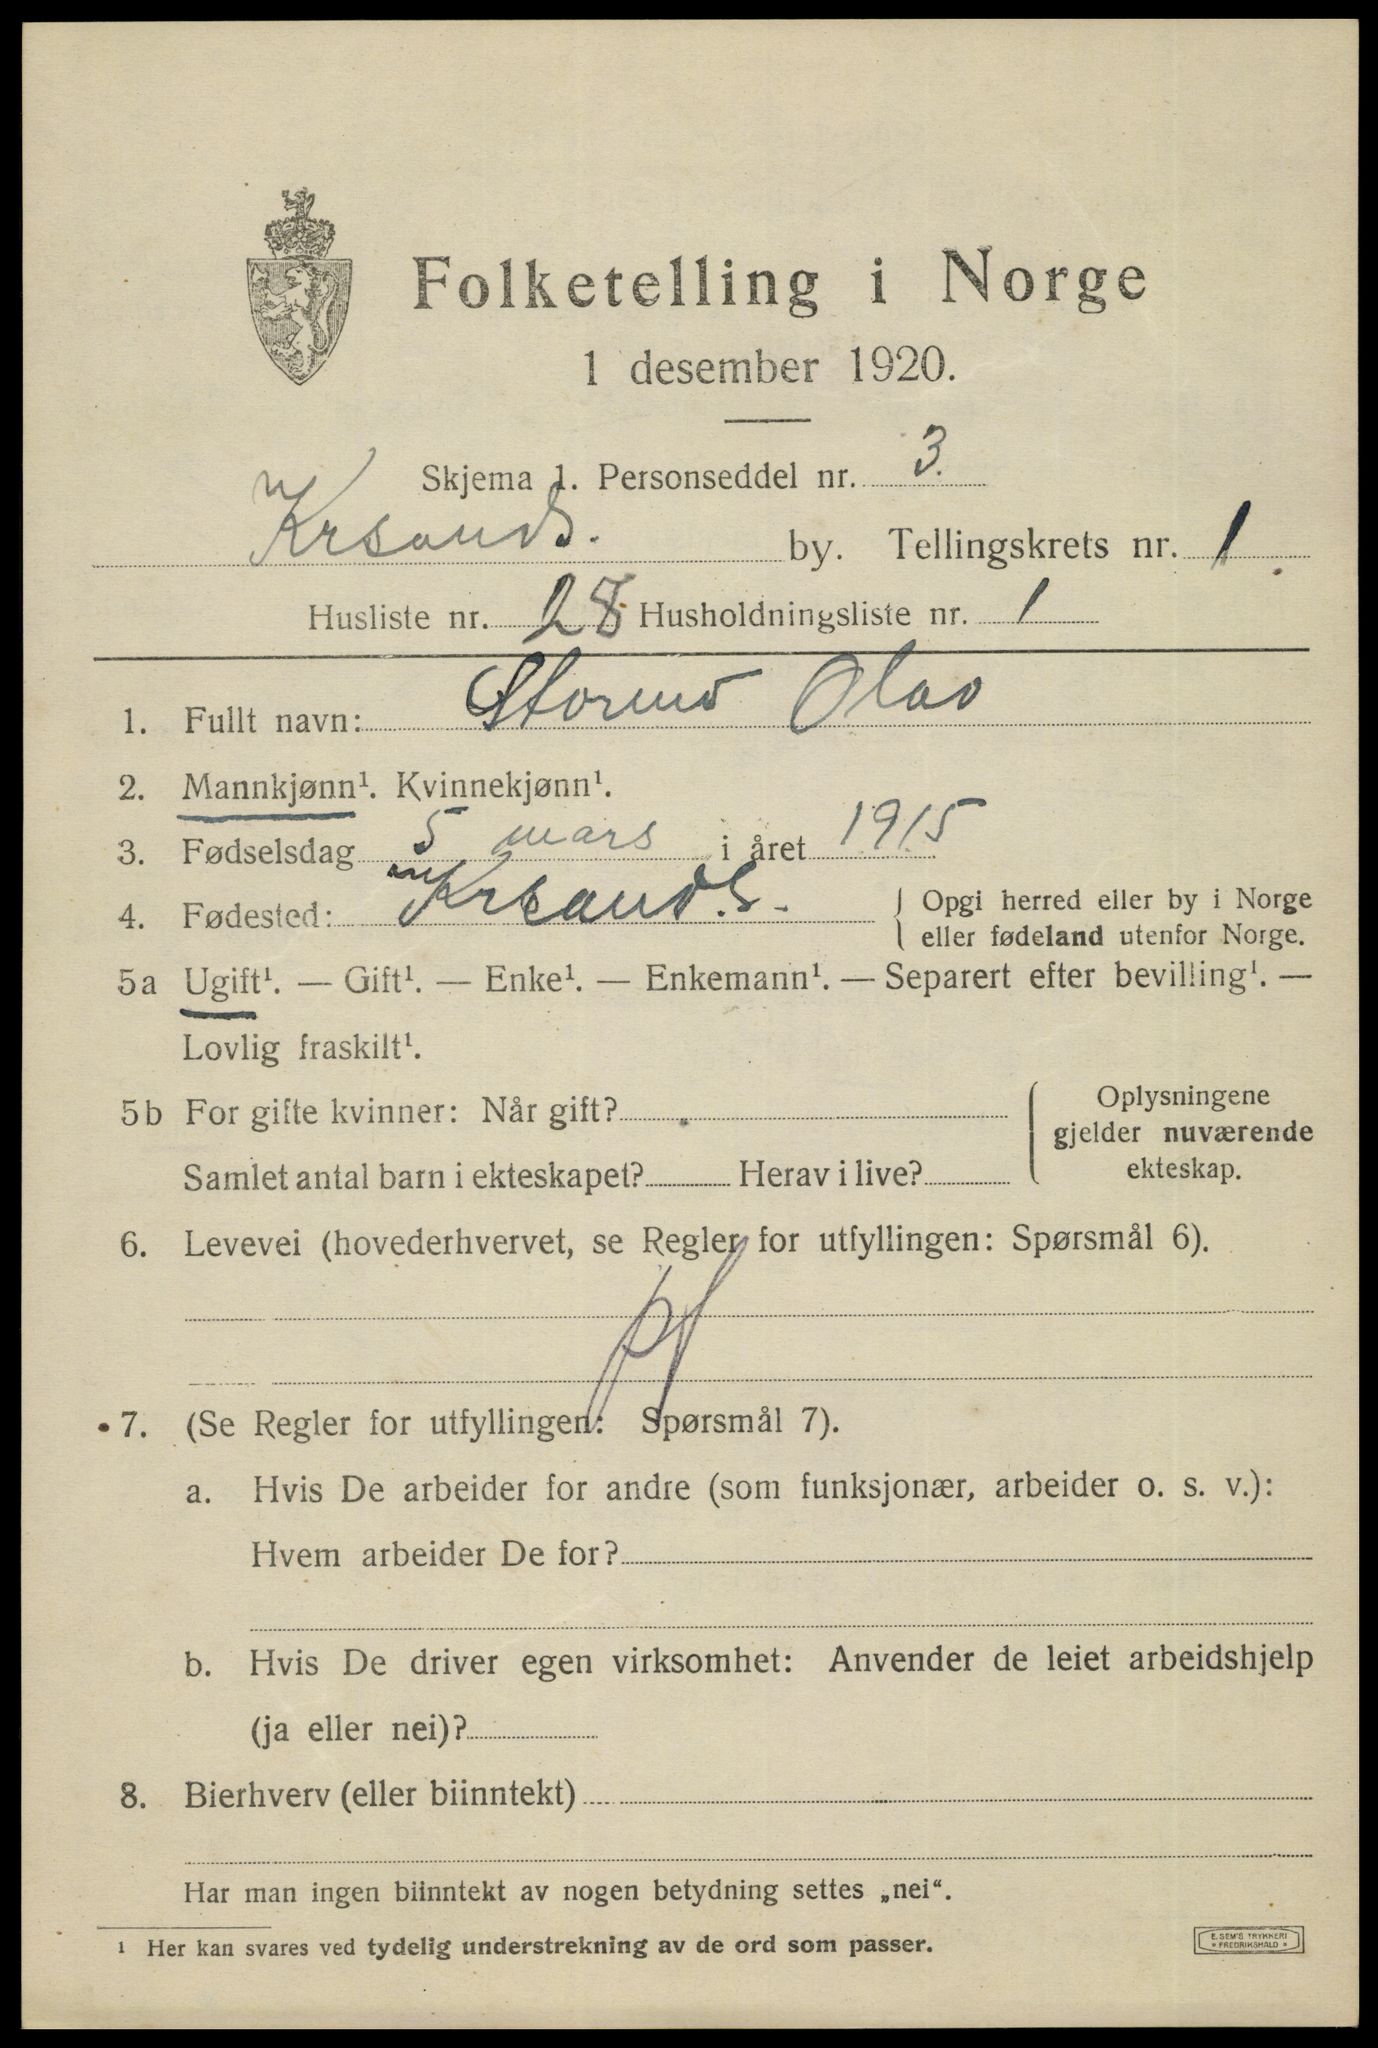 Folketelling i Norge
1 desember 1920.
Skjema 1. Personseddel nr. 3.
Krsands. by. Tellingskrets nr. 1
Husliste nr. 28 Husholdningsliste nr. 1
1. Fullt navn: Olav
2. Mannkjønn¹. Kvinnekjønn¹.
3. Fødselsdag 5 mars i året 1915
4. Fødested: Krsands. Opgi herred eller by i Norge
eller fødeland utenfor Norge.
5a Ugift¹. — Gift¹. — Enke¹. — Enkemann¹. — Separert efter bevilling¹. —
Lovlig fraskilt¹.
5b For gifte kvinner: Når gift? Oplysningene
gjelder nuværende
Samlet antal barn i ekteskapet? Herav i live? ekteskap.
6. Levevei (hovederhvervet, se Regler for utfyllingen: Spørsmål 6).
7. (Se Regler for utfyllingen: Spørsmål 7).
a. Hvis De arbeider for andre (som funksjonær, arbeider o. s. v.):
Hvem arbeider De for?
b. Hvis De driver egen virksomhet: Anvender de leiet arbeidshjelp
(ja eller nei)?
8. Bierhverv (eller biinntekt)
Har man ingen biinntekt av nogen betydning settes „nei“.
¹ Her kan svares ved tydelig understrekning av de ord som passer.
E. SEM'S TRYKKERI
* FREDRIKSHALD *